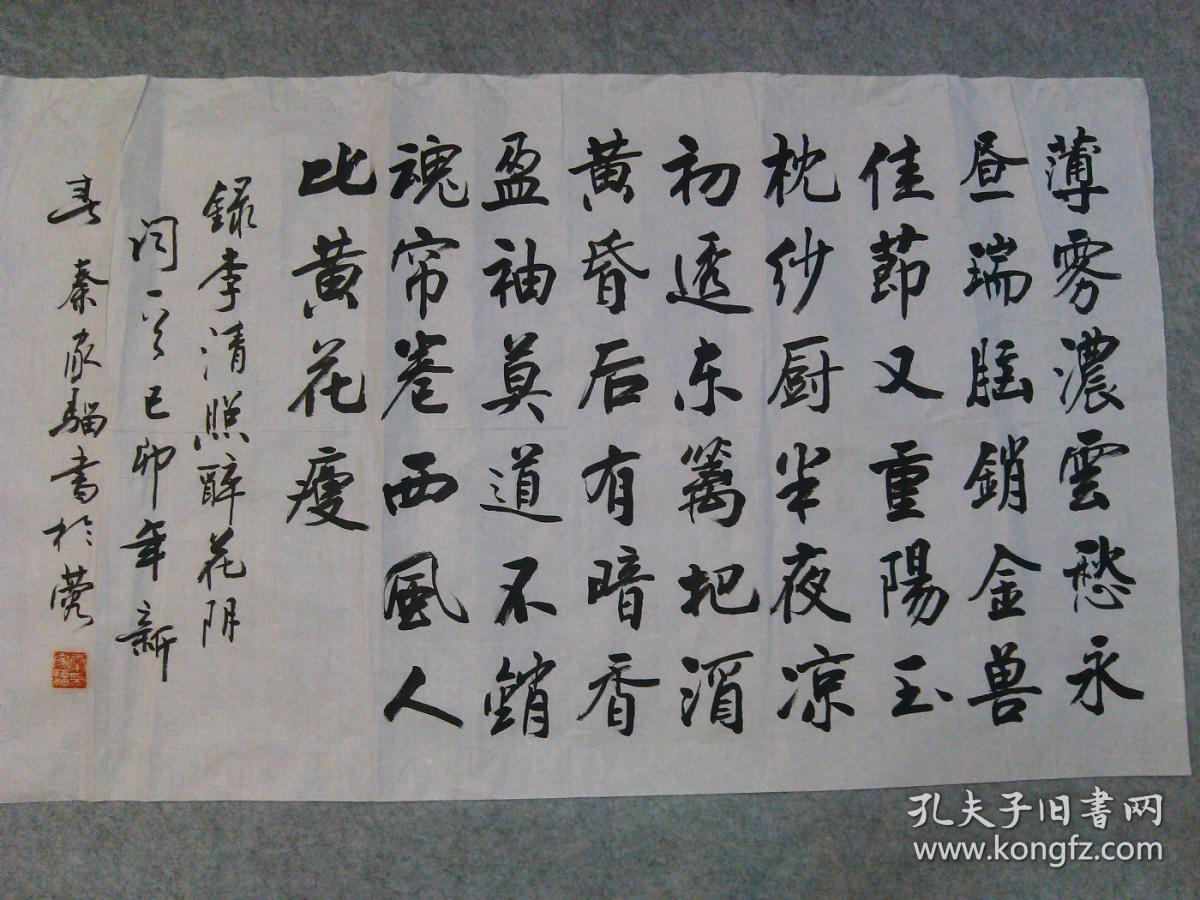 薄雾濃雲愁永
昼瑞脳銷金兽
佳節又重陽玉
枕纱厨半夜凉
初透东篱把酒
黄昏后有暗香
盈袖莫道不銷
魂帘卷西風人
比黄花瘦
録李清照醉花阴
词一首己卯年新
春 秦家骝書於蓉
孔夫子旧書网
www.kongfz.com